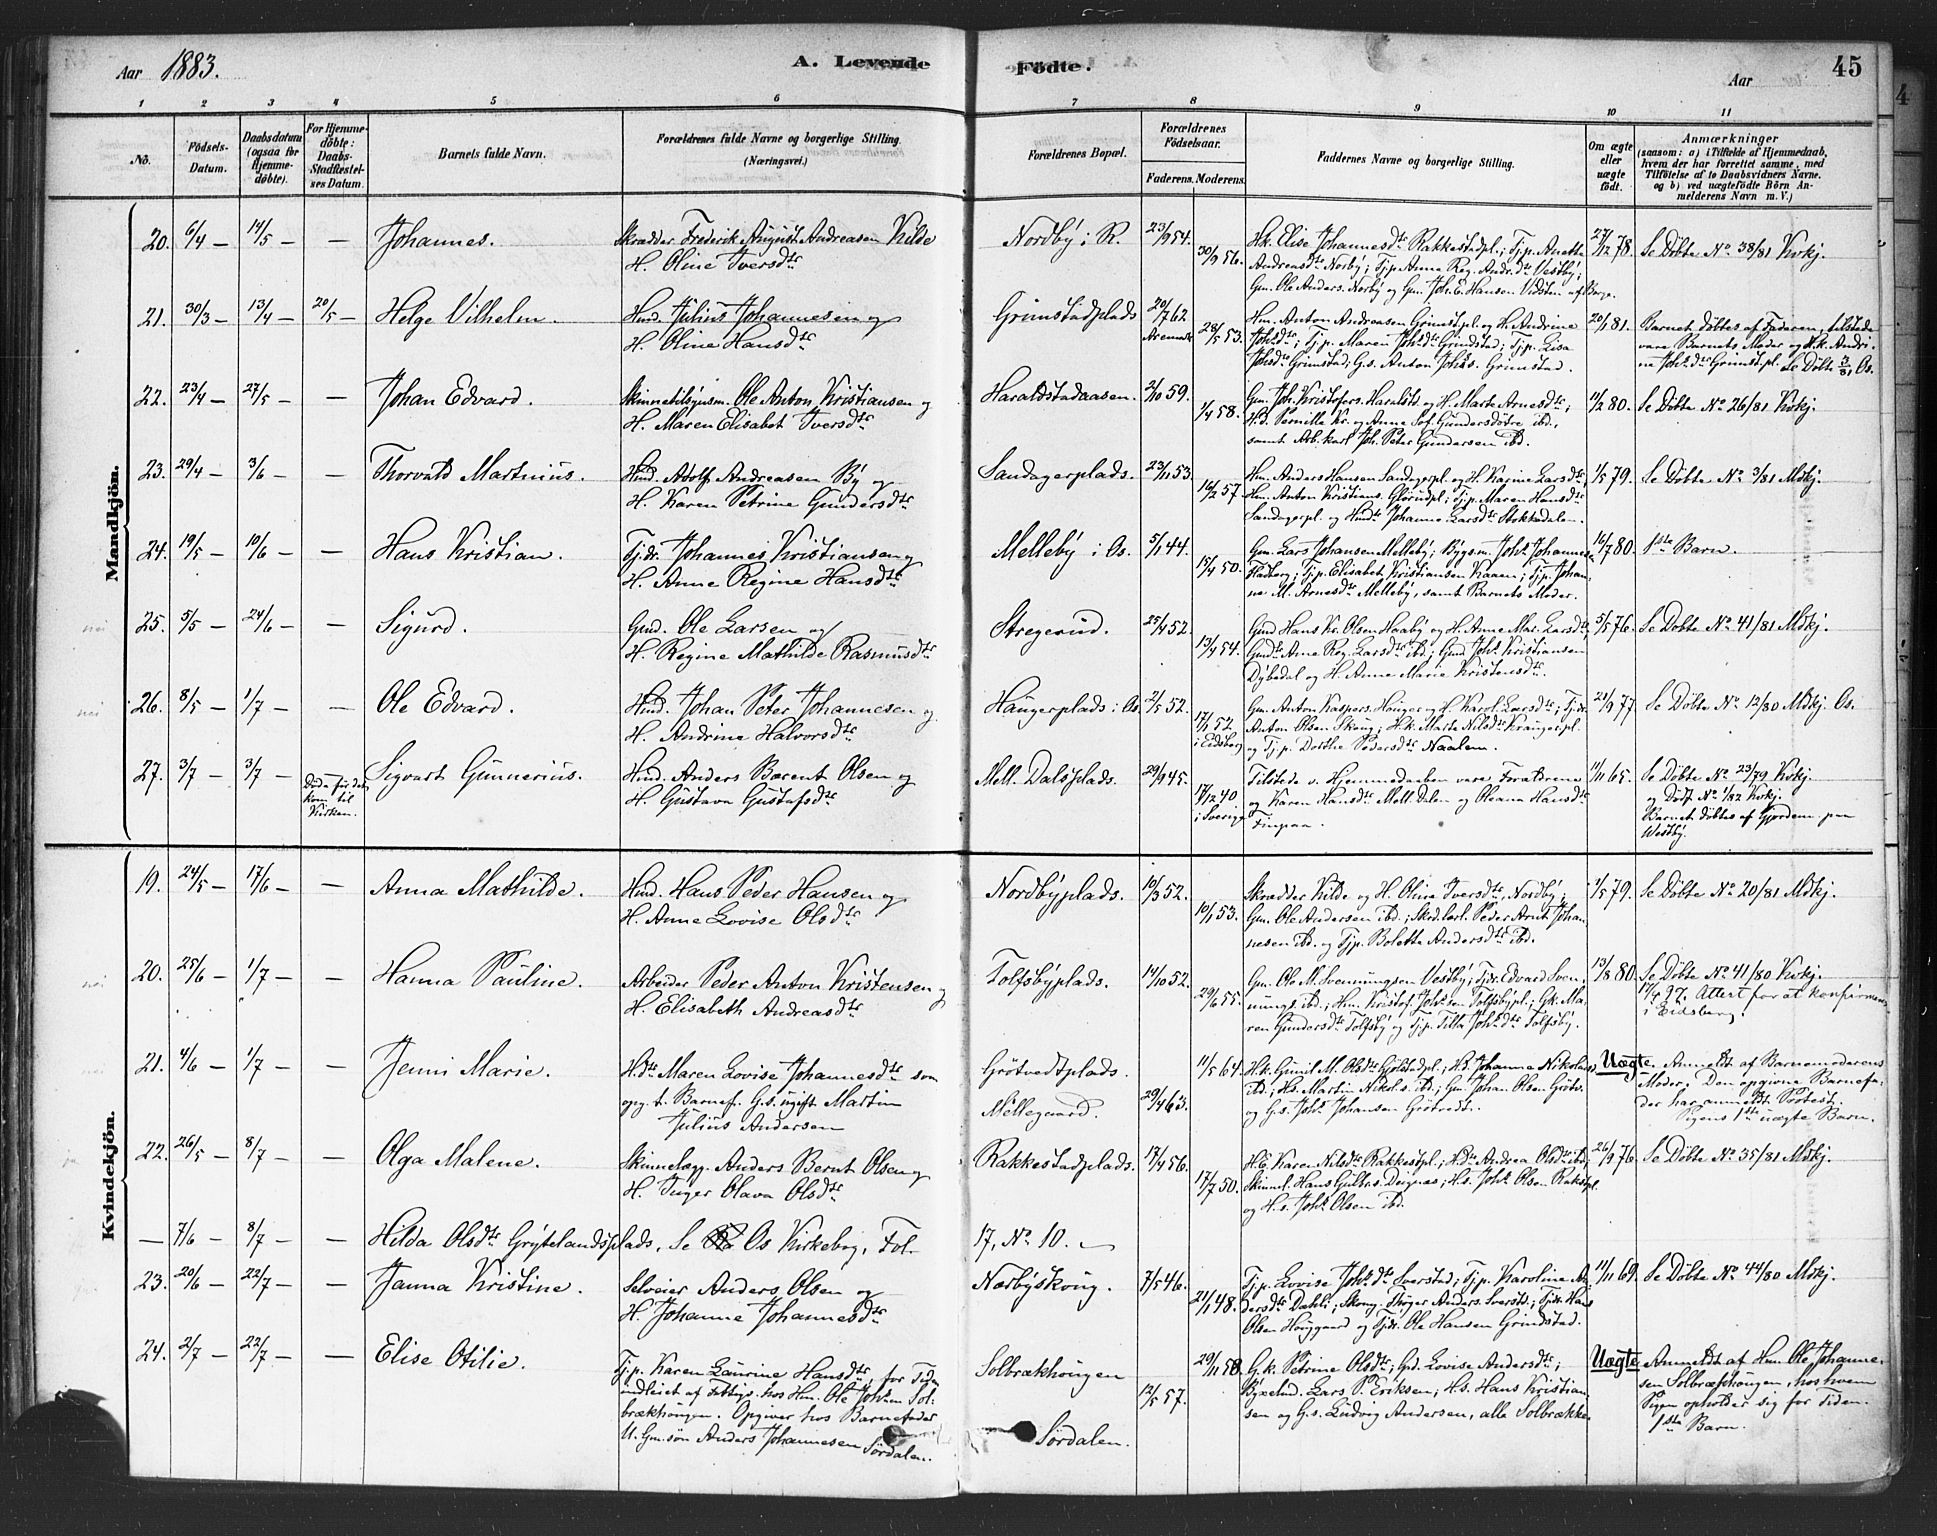 Aar 1883. A. Levende Födte. Aar 45
1 2 3 4 5 6 7 8 9 10 11
No.
Födsels-Datum.
Daabsdatum (ogsaa for Hjemme-döbte).
For Hjemme-döbte: Daabs-Stadfæstel-ses Datum.
Barnets fulde Navn.
Forældrenes fulde Navne og borgerlige Stilling. (Næringsvei.)
Forældrenes Bopæl.
Forældrenes Födselsaar. Faderens. Moderens.
Faddernes Navne og borgerlige Stilling.
Om ægte eller uægte födt.
Anmærkninger
(saasom: a) i Tilfælde af Hjemmedaab,
hvem der har forrettet samme, med
Tilföielse af to Daabsvidners Navne.
og b) ved uægtefödte Börn An-
melderens Navn m. V.)
Mandkjön.
20. 6/4 — 14/5 — — Johannes. Skrædder Frederik August Andreasen Kilde
H. Oline Iversdtr
Nordby i R. 23/9 54. 30/9 56.
Hk. Elise Johannesdtr Rakkestadpl.; Tjp. Anette
Andreasdtr Norby; Tjp. Anna Reg. Andr.dtr Vestby;
Gm. Ole Anders. Norby og Gm. Joh. E. Hansen Vidsten af Berge.
27/12 78. Se Döbte No 38/81 Kvkj.
21. 30/3 — 13/4 — 20/5 — Helge Vilhelm. Hmd. Julius Johannesen og
H. Oline Hansdtr
Grimstadplads 20/7 62 Aremark 28/5 53.
Hm. Anton Andreasen Grimst.pl. og H. Andrine
Johsdtr; Tjp. Maren Johsdtr Grimstad; Tjp. Lisa
Johsdtr Grimstad; G.s. Anton Johs. Grimstad.
20/1 81. Barnet döbtes af Faderen, tilstede
vare Barnets Moder og Hk. Andri-
ne Johsdtr Grimst.pl. Se Döbte 3/81 Os.
22. 23/4 — 27/5 — — Johan Edvard. Skinnetilsynsm. Ole Anton Kristiansen og
H. Maren Elisabet Iversdtr
Haraldstadaasen. 2/10 59. 1/4 58.
Gm. Joh. Kristofers. Haralstd og H. Marte Arnesdtr;
H.d. Pernille Kr. og Anna Sof. Gundersdötre ibd.,
samt Arb.karl Joh. Peter Gundersen ibd.
11/2 80. Se Döbte No 26/81 Kvkj.
23. 29/4 — 3/6 — — Thorvald Martinius. Hmd. Adolf Andreasen By og
H. Karen Petrine Gundersdtr
Sandagerplads. 23/11 53. 16/2 57.
Hm. Anders Hansen Sandagerpl. og H. Karine Larsdtr;
Hm. Anton Kristians. Glörudpl.; Tjp. Maren Hansdtr
Sandagerpl. og Hmdtr Johanne Larsdtr Stokkedalen.
1/5 79. Se Döbte No 3/81 Mdkj.
24. 19/5 — 10/6 — — Hans Kristian. Tjdr. Johannes Kristiansen og
H. Anne Regine Hansdtr
Melleby i Os. 5/1 44. 15/4 50.
Gm. Lars Johansen Melleby; Bygs.m. Johs Johannesen
Flatberg; Tjp. Elisabet Kristiansen Kaaen; Tjp. Johan-
ne M. Arnesdtr Melleby, samt Barnets Moder.
16/7 80. 1ste Barn.
25. 5/5 — 24/6 — — Sigurd. Gmd. Ole Larsen og
H. Regine Mathilde Rasmusdtr
Stregerud. 25/4 52. 13/4 54.
Gmd Hans Kr. Olsen Haaby og H. Anne Mar. Larsdtr
Gmdtr Anne Reg. Larsdtr ibd.; Gmd Johs Kristiansen
Dybedal og H. Anne Marie Kristensdtr.
5/5 76. Se Döbte No 41/81 Mdkj.
26. 8/5 — 1/7 — — Ole Edvard. Hmd. Johan Peter Johannesen og
H. Andrine Halvorsdtr
Haugerplads i Os. 2/5 52. 17/1 52 i Eidsberg
Gm. Anton Kaspers. Hauger og H. Karol. Larsdtr; Tjdr.
Anton Olsen Skaug; H.k. Marte Nilsdtr Krangerpl.
og Tjp. Dorthe Pedersdtr Naalem.
21/9 77. Se Döbte No 12/80 Mdkj. Os.
27. 3/7 — 3/7 — Döde för det kom til Kirken. Sigvart Gunnerius. Hmd. Anders Bærent Olsen og
H. Gustava Gustafsdtr
Mell. Dalsplads. 29/9 45. 17/12 40 i Sverige
Tilstede v. Hjemmedaaben vare Forældrene
og Karen Hansdtr Mell. Dalen og Oleana Hansdtr
Finpaa.
11/11 65. Se Döbte No 23/79 Kvkj.
og Dödf. No 1/82 Kvkj.
Barnet döbtes af Gjordem. paa
Westby.
Kvindekjön.
19. 24/5 — 17/6 — — Anna Mathilde. Hmd. Hans Peder Hansen og
H. Anne Lovise Olsdtr
Nordbyplads. 10/3 52. 10/1 53.
Skrædder Kilde og H. Oline Iversdtr, Nordby;
Gm. Ole Andersen ibd.; Skrd.lærl. Peder Arnt Johan-
nesen ibd. og Tjp. Bolette Andersdtr ibd.
1/5 79. Se Döbte No 20/81 Mdkj.
20. 25/6 — 1/7 — — Hanna Pauline. Arbeider Peder Anton Kristensen og
H. Elisabeth Andreasdtr
Tolfsbyplads. 14/10 52. 29/6 55.
Gm. Ole M. Svenningsen Vestby; Tjdr. Edvard Sven-
nungs. ibd.; Hm. Kristof. Johssen Tolfsbypl.; Gk. Ma-
ren Gundersdtr Tolfsby og Tjp. Tilla Johsdtr Tolfsby.
13/8 80. Se Döbte No 41/80 Kvkj.
17/4 97. Attest for at konfirmeres
i Eidsberg.
21. 4/6 — 1/7 — — Jenni Marie. H.dtr Maren Lovise Johannesdtr som
opg. t. Barnef. G.s. ugift Martin
Julius Andersen
Grötvedtplads. Mellegaard. 11/5 64. 29/4 63.
H.k. Gunil M. Olsdtr Gjölstadpl.; H.d. Johanne Nikolaisd.
ibd.; H.s. Martin Nikol.s. ibd.; Gm. Johan Olsen Grötv.
og G.s. Johs Johansen Grötvedt.
Uægte. Anmeldt af Barnemoderens
Moder. Den opgivne Barnefa-
der har anmeldt Protest.
Pigens 1ste uægte Barn.
22. 26/5 — 8/7 — — Olga Malene. Skinnelægg. Anders Bernt Olsen og
H. Inger Olava Olsdtr
Rakkestadplads. 17/4 56. 17/7 50.
H.k. Karen Nilsdtr Rakkestpl.; H.dtr Andrea Olsdtr ibd.;
Skinnel. Hans Gulbrs. Deignæs; H.s. Johs Olsen Rakstpl.
og H.s. Johs Olsen ibd.
26/9 76. Se Döbte No 35/81 Mdkj.
— 7/6 — 8/7 — Hilda Olsdtr Grytelandsplads. Se Os Kirkebog, Fol. 17, No 10.
23. 20/6 — 22/7 — — Janna Kristine. Selveier Anders Olsen og
H. Johanne Johannesdtr
Nærbyskoug. 7/5 46. 21/1 48.
Tjp. Lovise Johsdtr Sverstad; Tjp. Karoline An-
dersdtr Dahli; Skoug. Thöger Anders. Sverstd.; Tjdr. Hans
Olsen Houggaard og Tjdr. Ole Hansen Grindstad.
11/11 69. Se Döbte No 44/80 Mdkj.
24. 2/7 — 22/7 — — Elise Otilie. Tjp. Karen Laurine Hansdtr, for Tiden
indleiet af Fattigv. hos Hm. Ole Johssen Sol-
brækhougen. Opgiver hos Barnefader
U. Gm.sön Anders Johannesen Sördalen.
Solbrækhougen Sördalen. 29/11 58. 12/5 57.
G.k. Petrine Olsdtr; G.d. Lovise Andersdtr;
Byxelmd. Lars P. Eriksen; H.s. Hans Kristian-
sen og G.s. Ludvig Andersen, alle Solbrække.
Uægte. Anmeldt af Hm. Ole Johanne-
sen Solbrækhougen, hos hvem
Pigen opholder sig for Tiden.
1ste Barn.